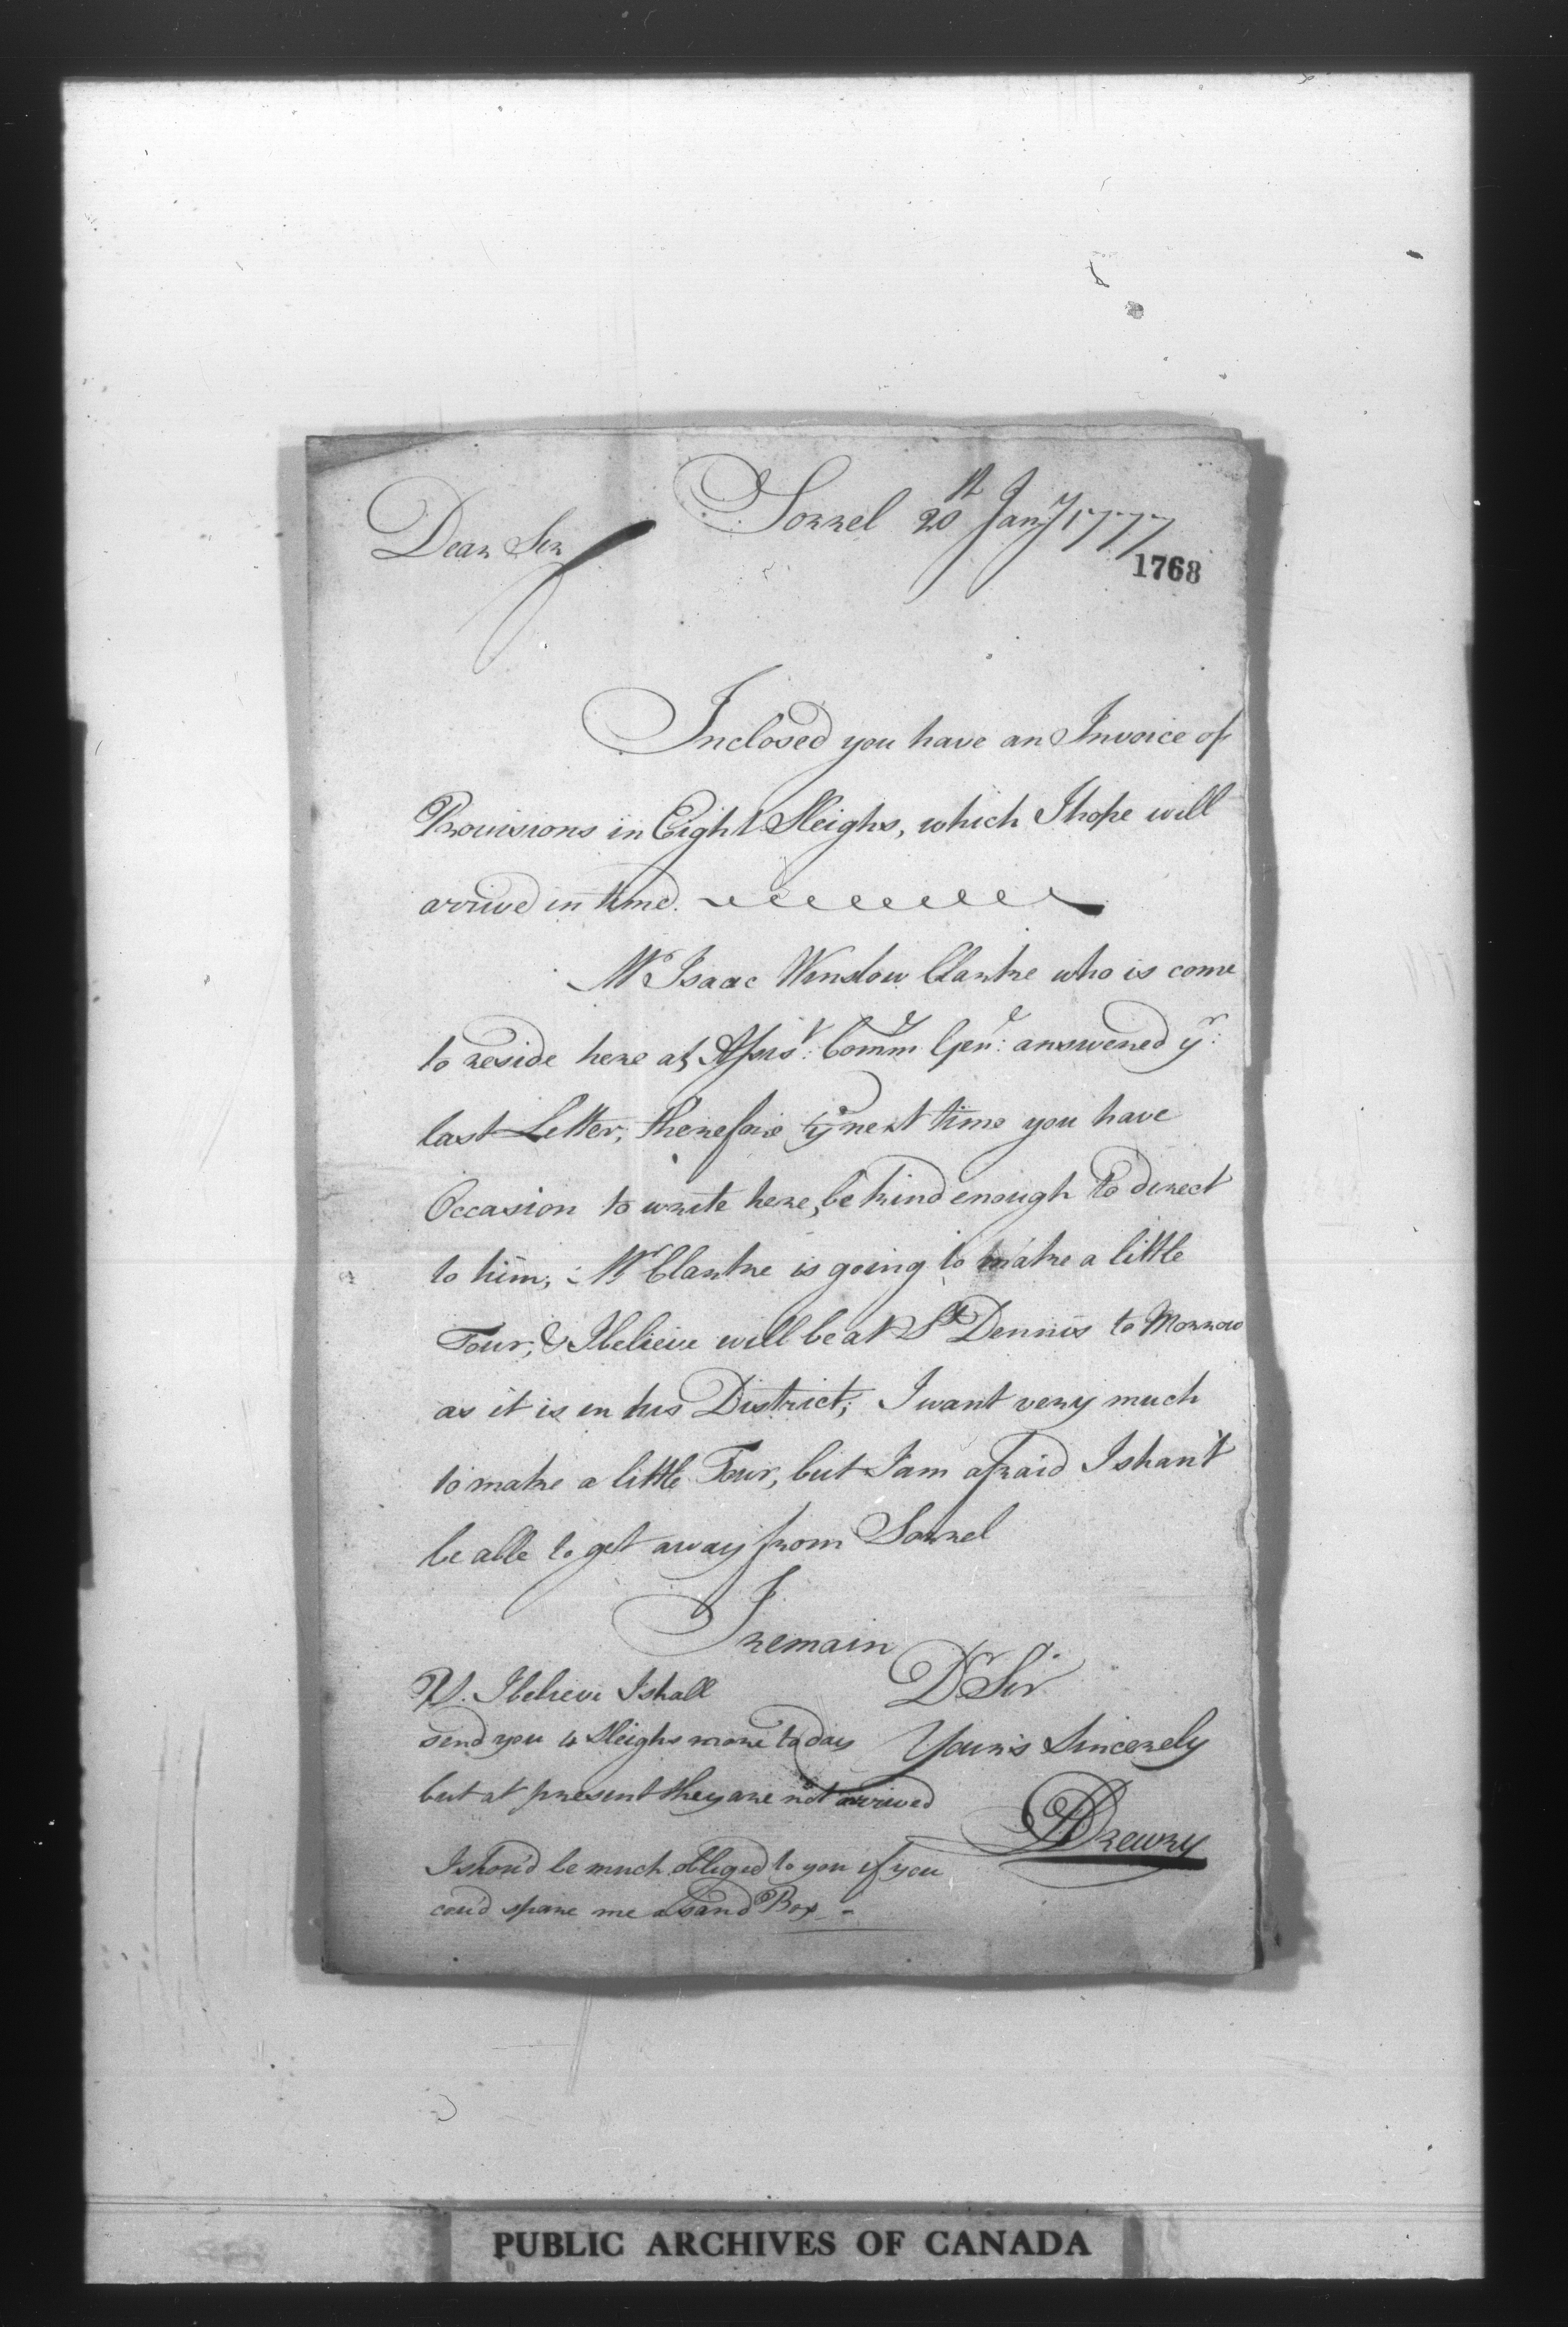 Sorrel 20th Jany 1777
Dear Sir
1768
Inclosed you have an Invoice of
Provisions in Eight Sleighs, which I hope will
arrive in time.
Mr Isaac Winslow Clarke who is come
to reside here as Assist: Commy Genl: answered yr:
last Letter, therefore ye next time you have
Occasion to write here, be kind enough to direct
to him; Mr Clarke is going to make a little
Tour, & I believe will be at St Dennis to Morrow
as it is in his District; I want very much
to make a little Tour, but I am afraid I shan't
be able to get away from Sorrel
I remain
Dr Sir
Your's Sincerely
Drewry
PS. I believe I shall
send you 4 Sleighs more to day
but at present they are not arrived
I shou'd be much obliged to you if you
cou'd spare me a Sand Box
PUBLIC ARCHIVES OF CANADA